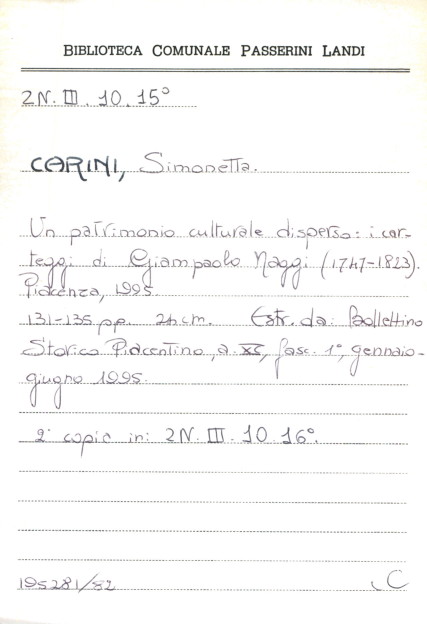 BIBLIOTECA COMUNALE PASSERINI LANDI
2N.III.10.15°
CARINI, Simonetta.
Un patrimonio culturale disperso: i car-
teggi di Giampaolo Maggi (1747-1823).
Piacenza, 1995.
131-135 pp. 24 cm. Estr. da: Bollettino
Storico Piacentino, a. XC, fasc. 1°, gennaio-
giugno 1995.
2° copia in: 2N.III.10.16°.
195281/82
C